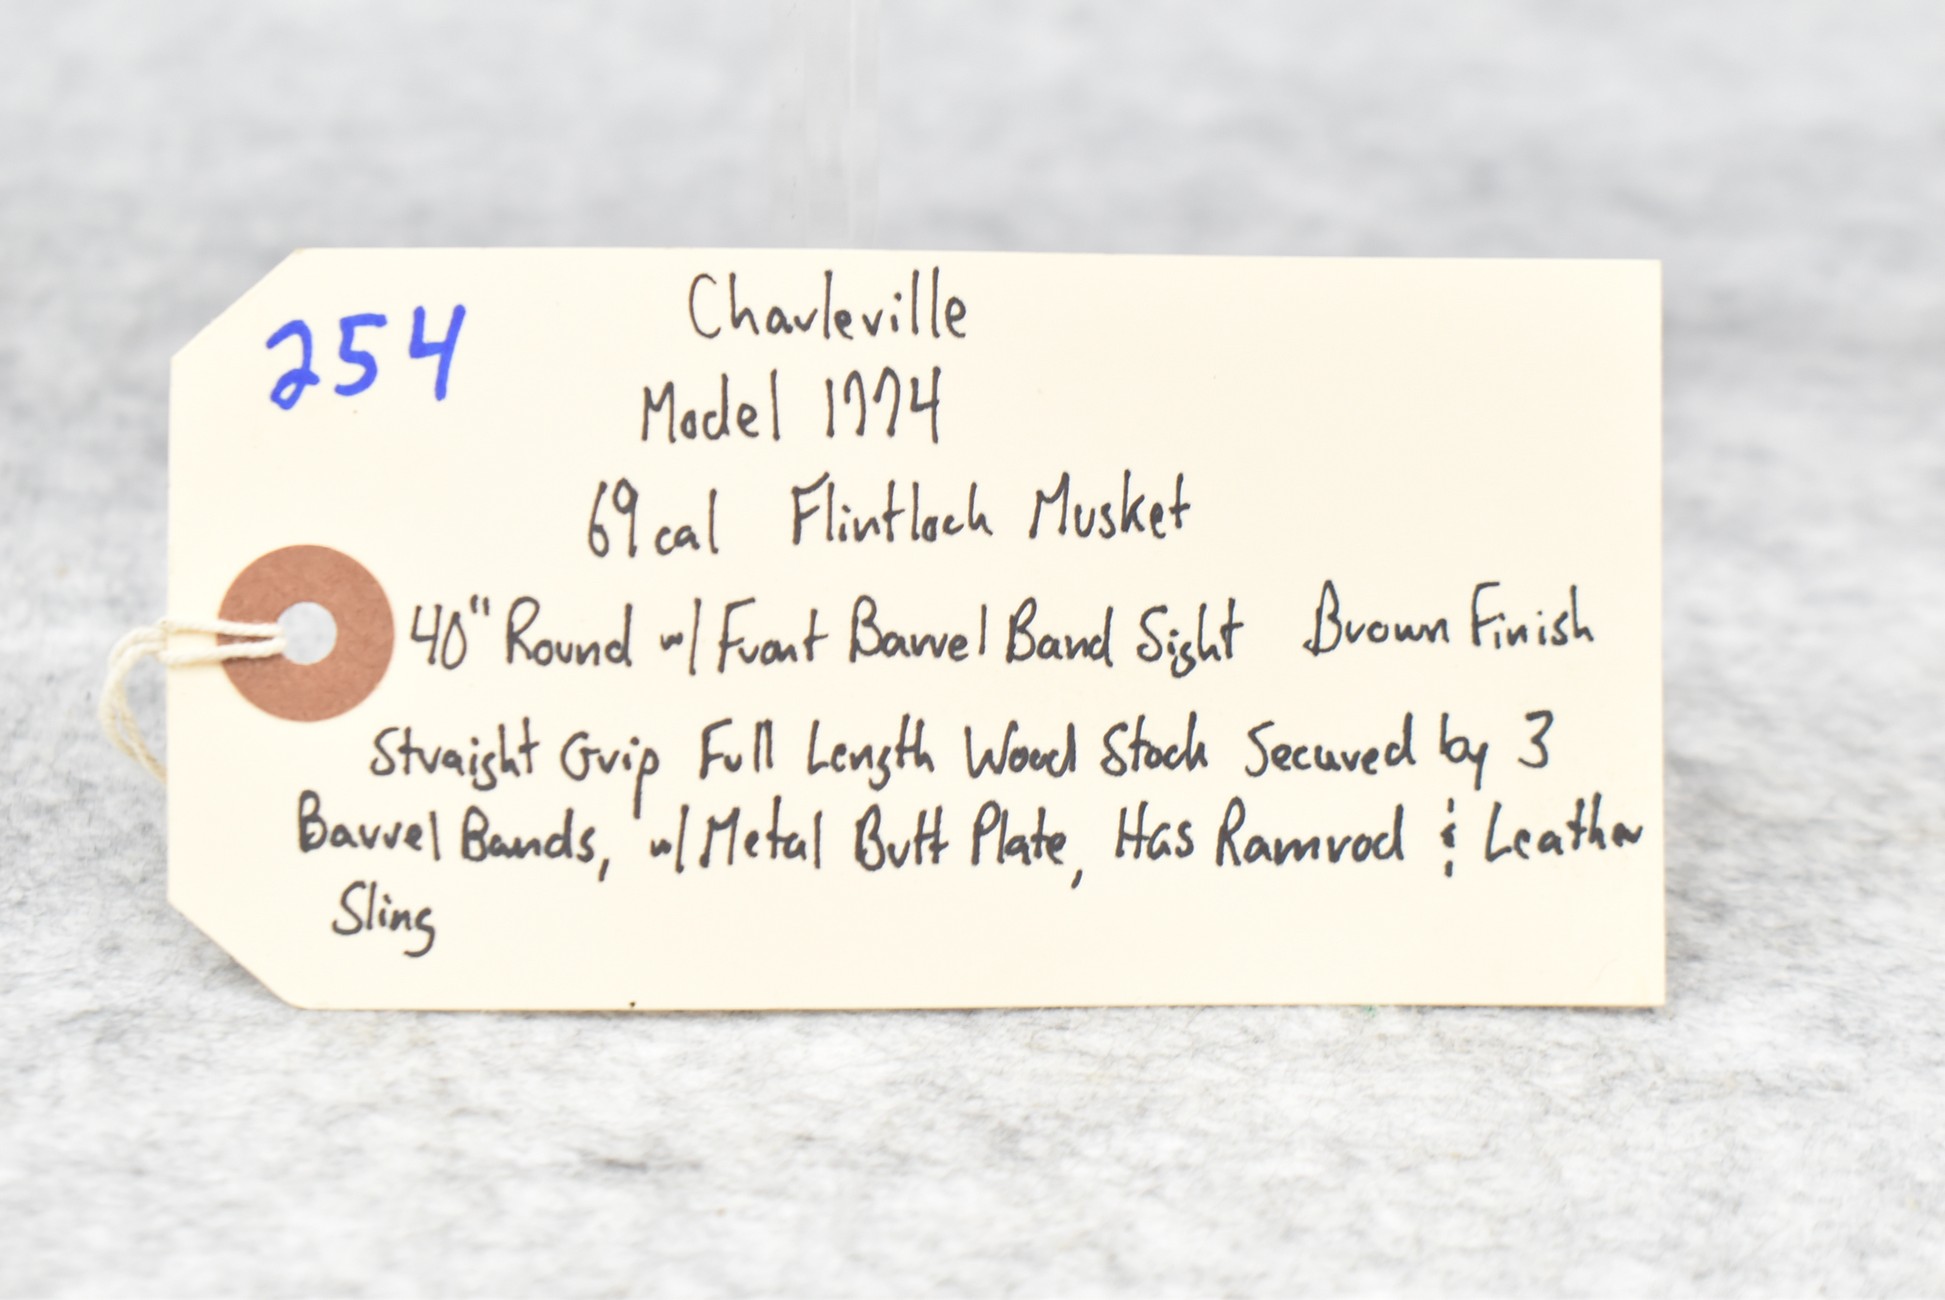 254
Charleville
Model 1774
69cal Flintlock Musket
40" Round w/ Front Barrel Band Sight Brown Finish
Straight Grip Full Length Wood Stock Secured by 3
Barrel Bands, w/ Metal Butt Plate, Has Ramrod & Leather
Sling